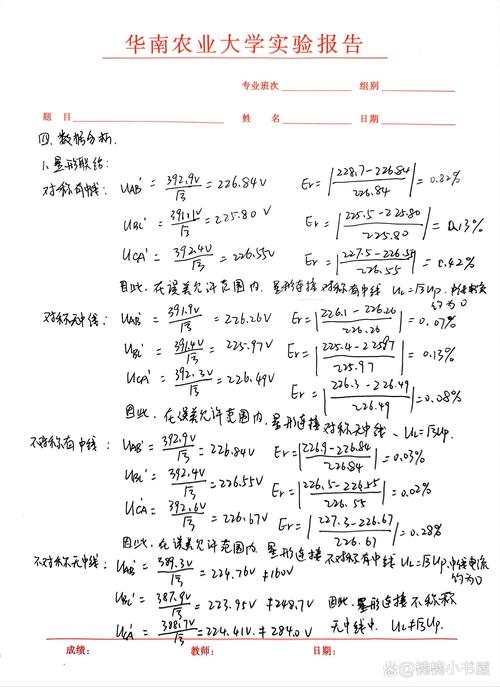 华南农业大学实验报告
专业班次 组别
题目 姓名 日期
四.数据分析.
1.星形联结:
对称有中线: UAB' = 392.9V/√3 = 226.84V Er = |228.7-226.84/226.84| = 0.82%
UBC' = 391.1V/√3 = 225.80V Er = |225.5-225.80/225.80| = 0.13%
UCA' = 392.4V/√3 = 226.55V Er = |227.5-226.55/226.55| = 0.42%
因此,在误差允许范围内,星形连接对称有中线 UL=√3Up,
约为0
对称无中线: UAB' = 391.9V/√3 = 226.26V Er = |226.1-226.26/226.26| = 0.07%
UBC' = 391.4V/√3 = 225.97V Er = |225.4-225.97/225.97| = 0.13%
UCA' = 392.3V/√3 = 226.49V Er = |226.3-226.49/226.49| = 0.08%
因此,在误差允许范围内,星形连接对称无中线、UL=√3Up.
不对称有中线: UAB' = 392.9V/√3 = 226.84V Er = |226.9-226.84/226.84| = 0.03%
UBC' = 392.4V/√3 = 226.55V Er = |226.5-226.55/226.55| = 0.02%
UCA' = 392.6V/√3 = 226.67V Er = |227.3-226.67/226.67| = 0.28%
因此,在误差允许范围内,星形连接不对称有中线 UL=√3Up,中线电流
约为0
不对称无中线: UAB' = 389.3V/√3 = 224.76V ≠ 160V
UBC' = 387.9V/√3 = 223.95V ≠ 248.7V 因此,星形连接不称称
UCA' = 388.7V/√3 = 224.41V ≠ 284.0V 无中线中,UL≠√3Up.
成绩: 教师: 日期:
@楠楠小书屋